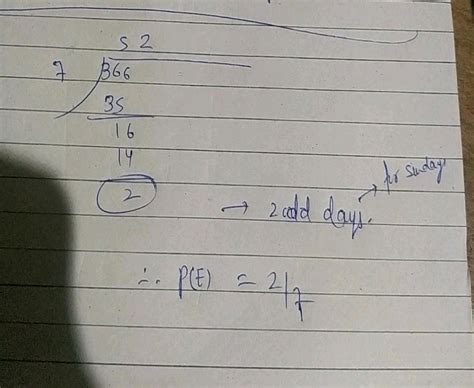 52
7 366
35
16
14
2
→ 2 odd days. → for sundays
∴ P(E) = 2/7